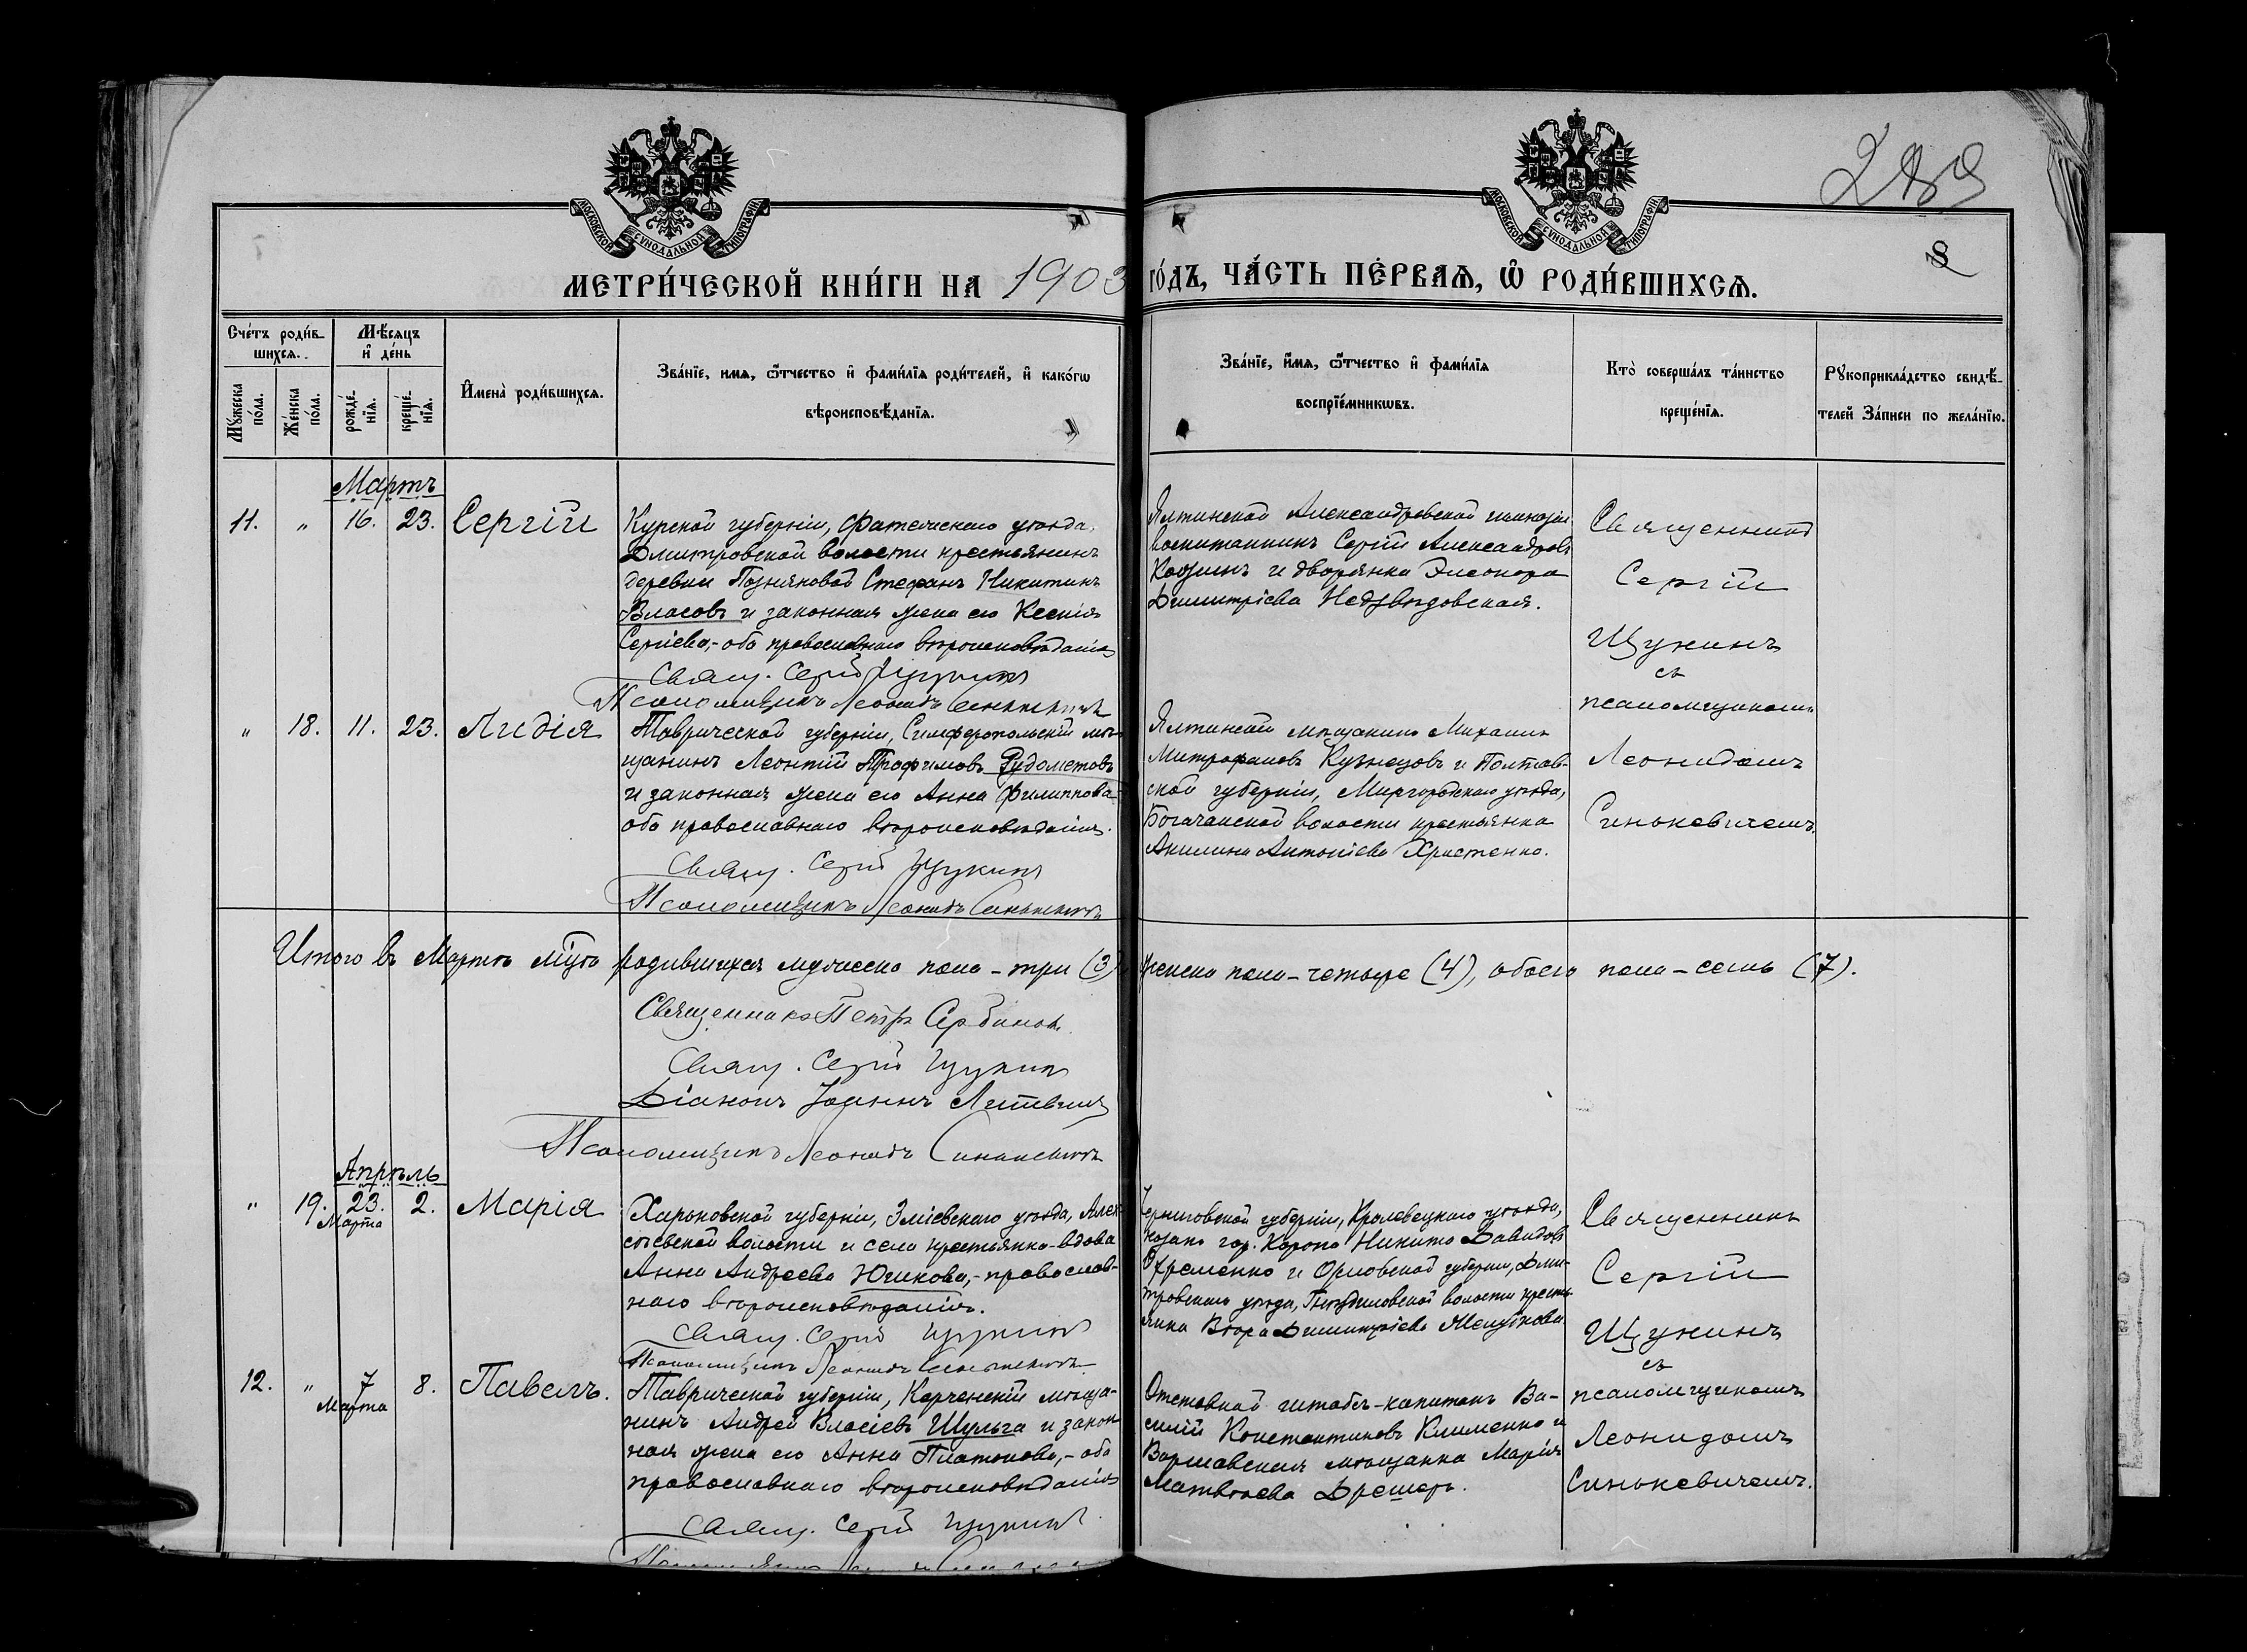 289
8
МОСКОВСКОЙ СѴНОДАЛЬНОЙ ТИПОГРАФІИ
МОСКОВСКОЙ СѴНОДАЛЬНОЙ ТИПОГРАФІИ
МЕТРИ́ЧЕСКОЙ КНИ́ГИ НА 1903 ГО́ДЪ, ЧА́СТЬ ПЕ́РВАѦ, Ѿ РОДИ́ВШИХСѦ.
Сче́тъ роди́в-
шихсѧ.
Мѣ́сѧцъ
и҆ де́нь
Мꙋ́жеска по́ла.
Же́нска по́ла.
рожде́-
нїѧ.
креще́-
нїѧ.
И҆мена̀ роди́вшихсѧ.
Зва́нїе, имѧ, ѻ҆́тчество и҆ фами́лїѧ роди́телей, и҆ како́гѡ
вѣроисповѣ́данїѧ.
Зва́нїе, и҆́мѧ, ѻ҆́тчество и҆ фами́лїѧ
воспрїе́мникѡвъ.
Кто̀ соверша́лъ та́инство
креще́нїѧ.
Рꙋкоприкла́дство свидѣ́-
телей За́писи по жела́нїю.
Мартъ
11. " 16. 23. Сергій
Курской губерніи, Фатежскаго уѣзда,
Дмитровской волости крестьянинъ
деревни Поздняковой Стефанъ Никитинъ
Власовъ и законная жена его Ксенія
Сергіева,- оба православнаго вѣроисповѣданія
Свящ. Сергій Щукинъ
Псаломщикъ Леонидъ Синькевичъ
Ялтинской Александровской гимназіи
воспитанникъ Сергій Александровъ
и дворянка Элеонора
Димитріева Недзвѣдовская.
Священникъ
Сергій
Щукинъ
съ
псаломщикомъ
Леонидомъ
Синькевичемъ.
" 18. 11. 23. Лидія
Таврической губерніи, Симферопольскій мѣ-
щанинъ Леонтій Трофимовъ Рудометовъ
и законная жена его Анна Филиппова-
оба православнаго вѣроисповѣданія.
Свящ. Сергій Щукинъ
Псаломщикъ Леонидъ Синькевичъ
Ялтинскій мѣщанинъ Михаилъ
Митрофановъ Кузнецовъ и Полтав-
ской губерніи, Миргородскаго уѣзда,
Богачанской волости крестьянка
Акилина Антоніева Христенко.
Итого въ Мартѣ м̃цѣ родившихся мужеска пола - три (3), женска пола - четыре (4), обоего пола - семь (7).
Священникъ Петръ Сербиновъ.
Свящ. Сергій Щукинъ
Діаконъ Іоаннъ Литвинъ
Псаломщикъ Леонидъ Синькевичъ
Апрѣль
" 19. 23. Марта 2. Марія
Харьковской губерніи, Зміевскаго уѣзда, Алек-
сѣевской волости и села крестьянка-вдова
Анна Андреева Юшкова,- православ-
наго вѣроисповѣданія.
Свящ. Сергій Щукинъ
Псаломщикъ Леонидъ Синькевичъ
Черниговской губерніи, Кролевецкаго уѣзда,
казакъ гор. Коропа Никита Давидовъ
Ефременко и Орловской губерніи, Дми-
тровскаго уѣзда, волости кресть-
янка Вѣра Димитріева
Священникъ
Сергій
Щукинъ
съ
псаломщикомъ
Леонидомъ
Синькевичемъ.
12. " 7 Марта 8. Павелъ.
Таврической губерніи, Керченскій мѣща-
нинъ Андрей Власіевъ Шульга и закон-
ная жена его Анна Платонова,- оба
православнаго вѣроисповѣданія
Свящ. Сергій Щукинъ
Отставной штабсъ-капитанъ Ва-
силій Константиновъ Клименко и
Варшавская мѣщанка Марія
Матвѣева Дрешеръ.